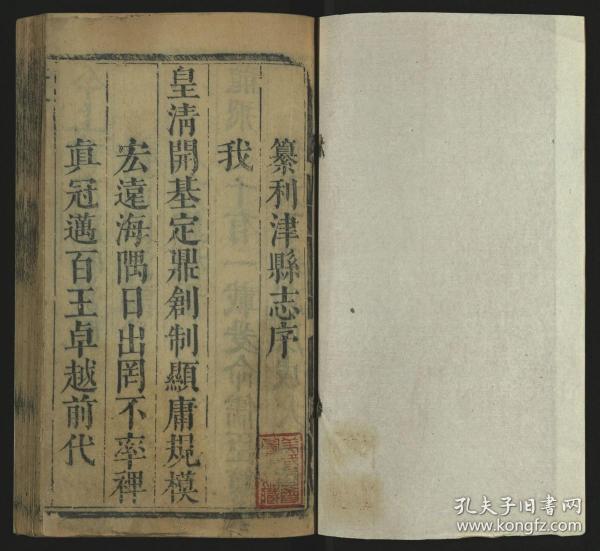 纂利津縣志序
我
皇清開基定鼎創制顯庸規模
宏遠海隅日出罔不率裡
真冠邁百王卓越前代
孔夫子旧书网
www.kongfz.com